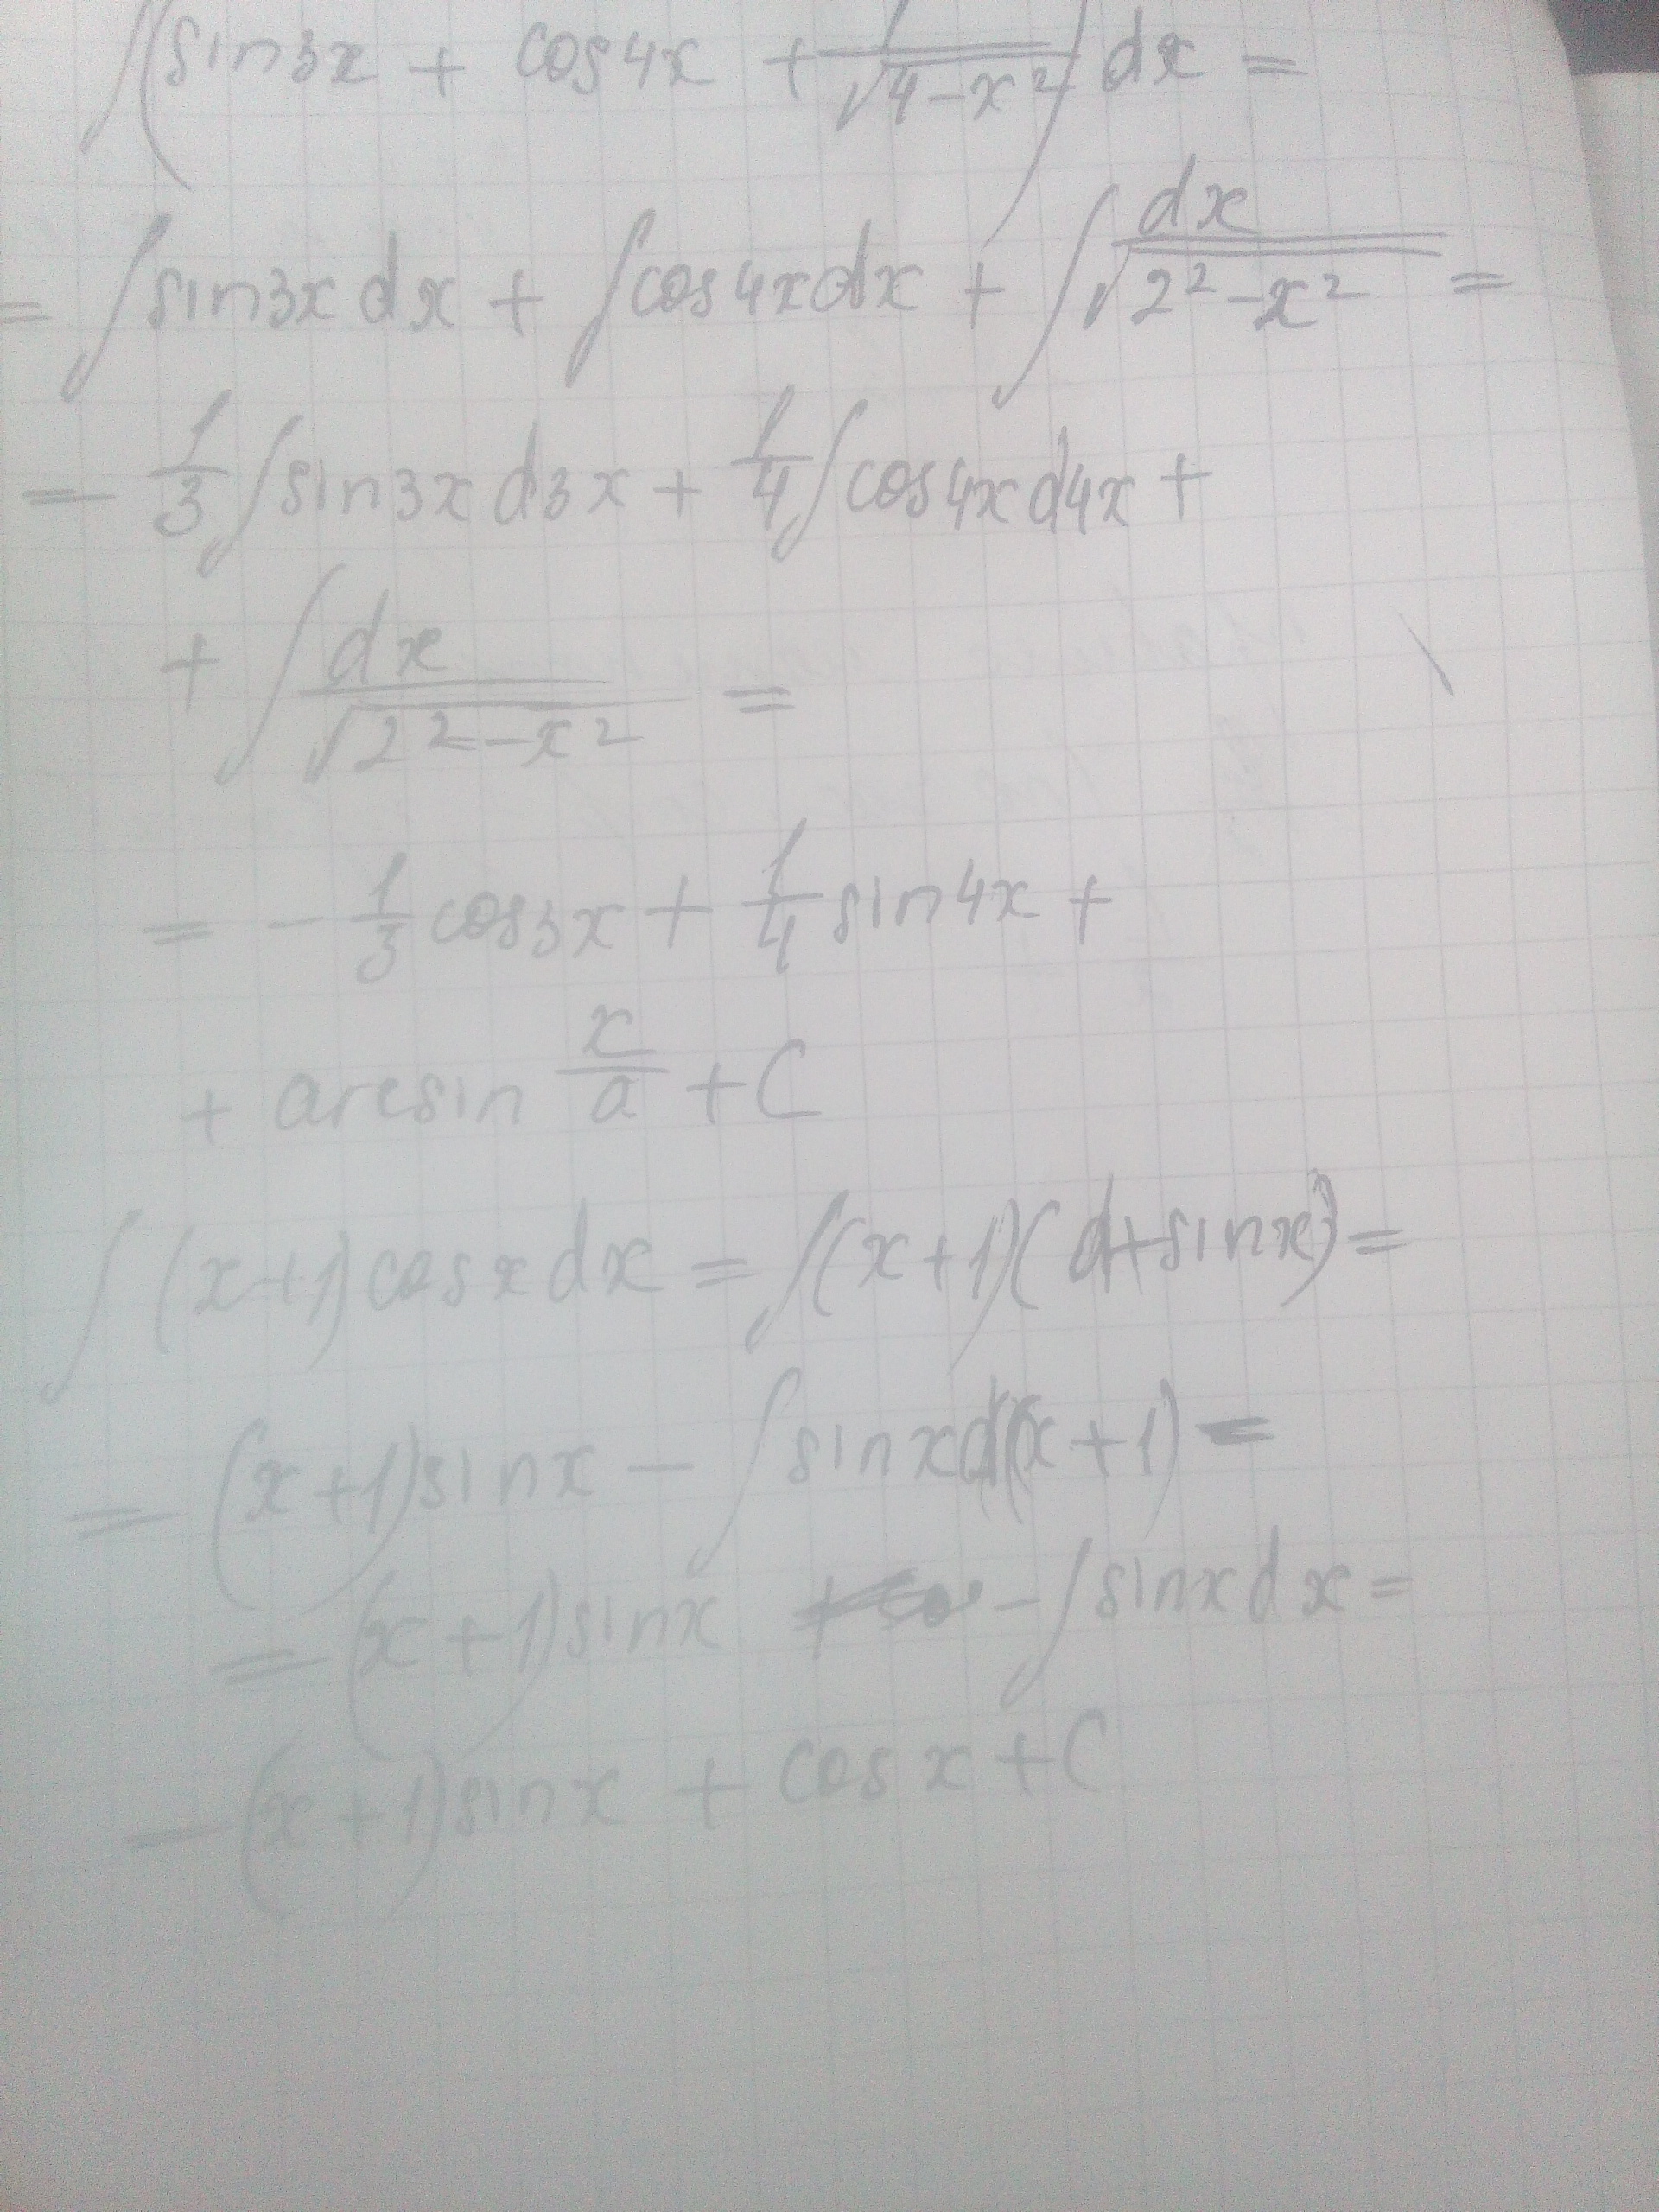 ∫(sin3x + cos4x + 1/√(4-x²))dx =
= ∫sin3xdx + ∫cos4xdx + ∫dx/√(2²-x²) =
= 1/3∫sin3xd3x + 1/4∫cos4xd4x +
+ ∫dx/√(2²-x²) =
= -1/3cos3x + 1/4sin4x +
+ arcsin x/a + C
∫(x+1)cosxdx = ∫(x+1)(d+sinx) =
= (x+1)sinx - ∫sinxd(x+1) =
= (x+1)sinx - ∫sinxdx =
- (x+1)sinx + cosx + C